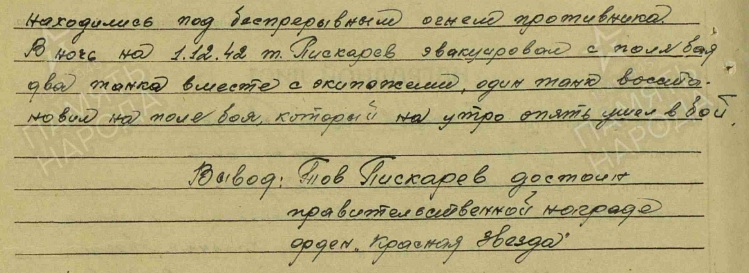 находились под беспрерывным огнем противника.
В ночь на 1.12.42 т. Пискарев эвакуировал с поля боя
два танка вместе с экипажеми, один танк восста-
новил на поле боя, который на утро опять ушел в бой.
Вывод: Тов Пискарев достоин
правительственной награде
орден „Красная Звезда"
ПАМЯТЬ НАРОДА
ПАМЯТЬ НАРОДА